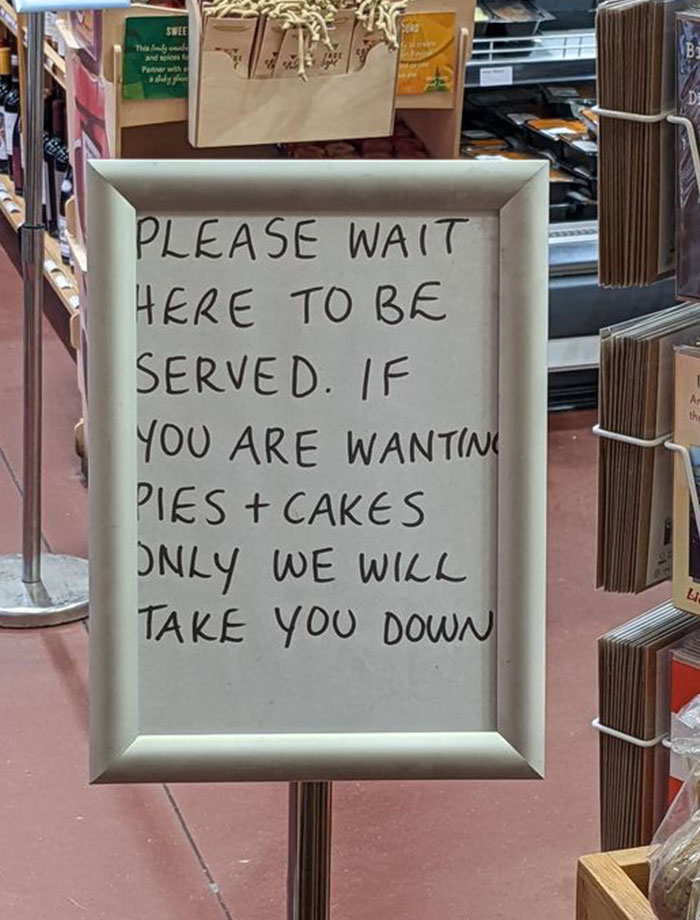 PLEASE WAIT
HERE TO BE
SERVED. IF
YOU ARE WANTING
PIES + CAKES
ONLY WE WILL
TAKE YOU DOWN
SWEE
This
and spices
Partner with